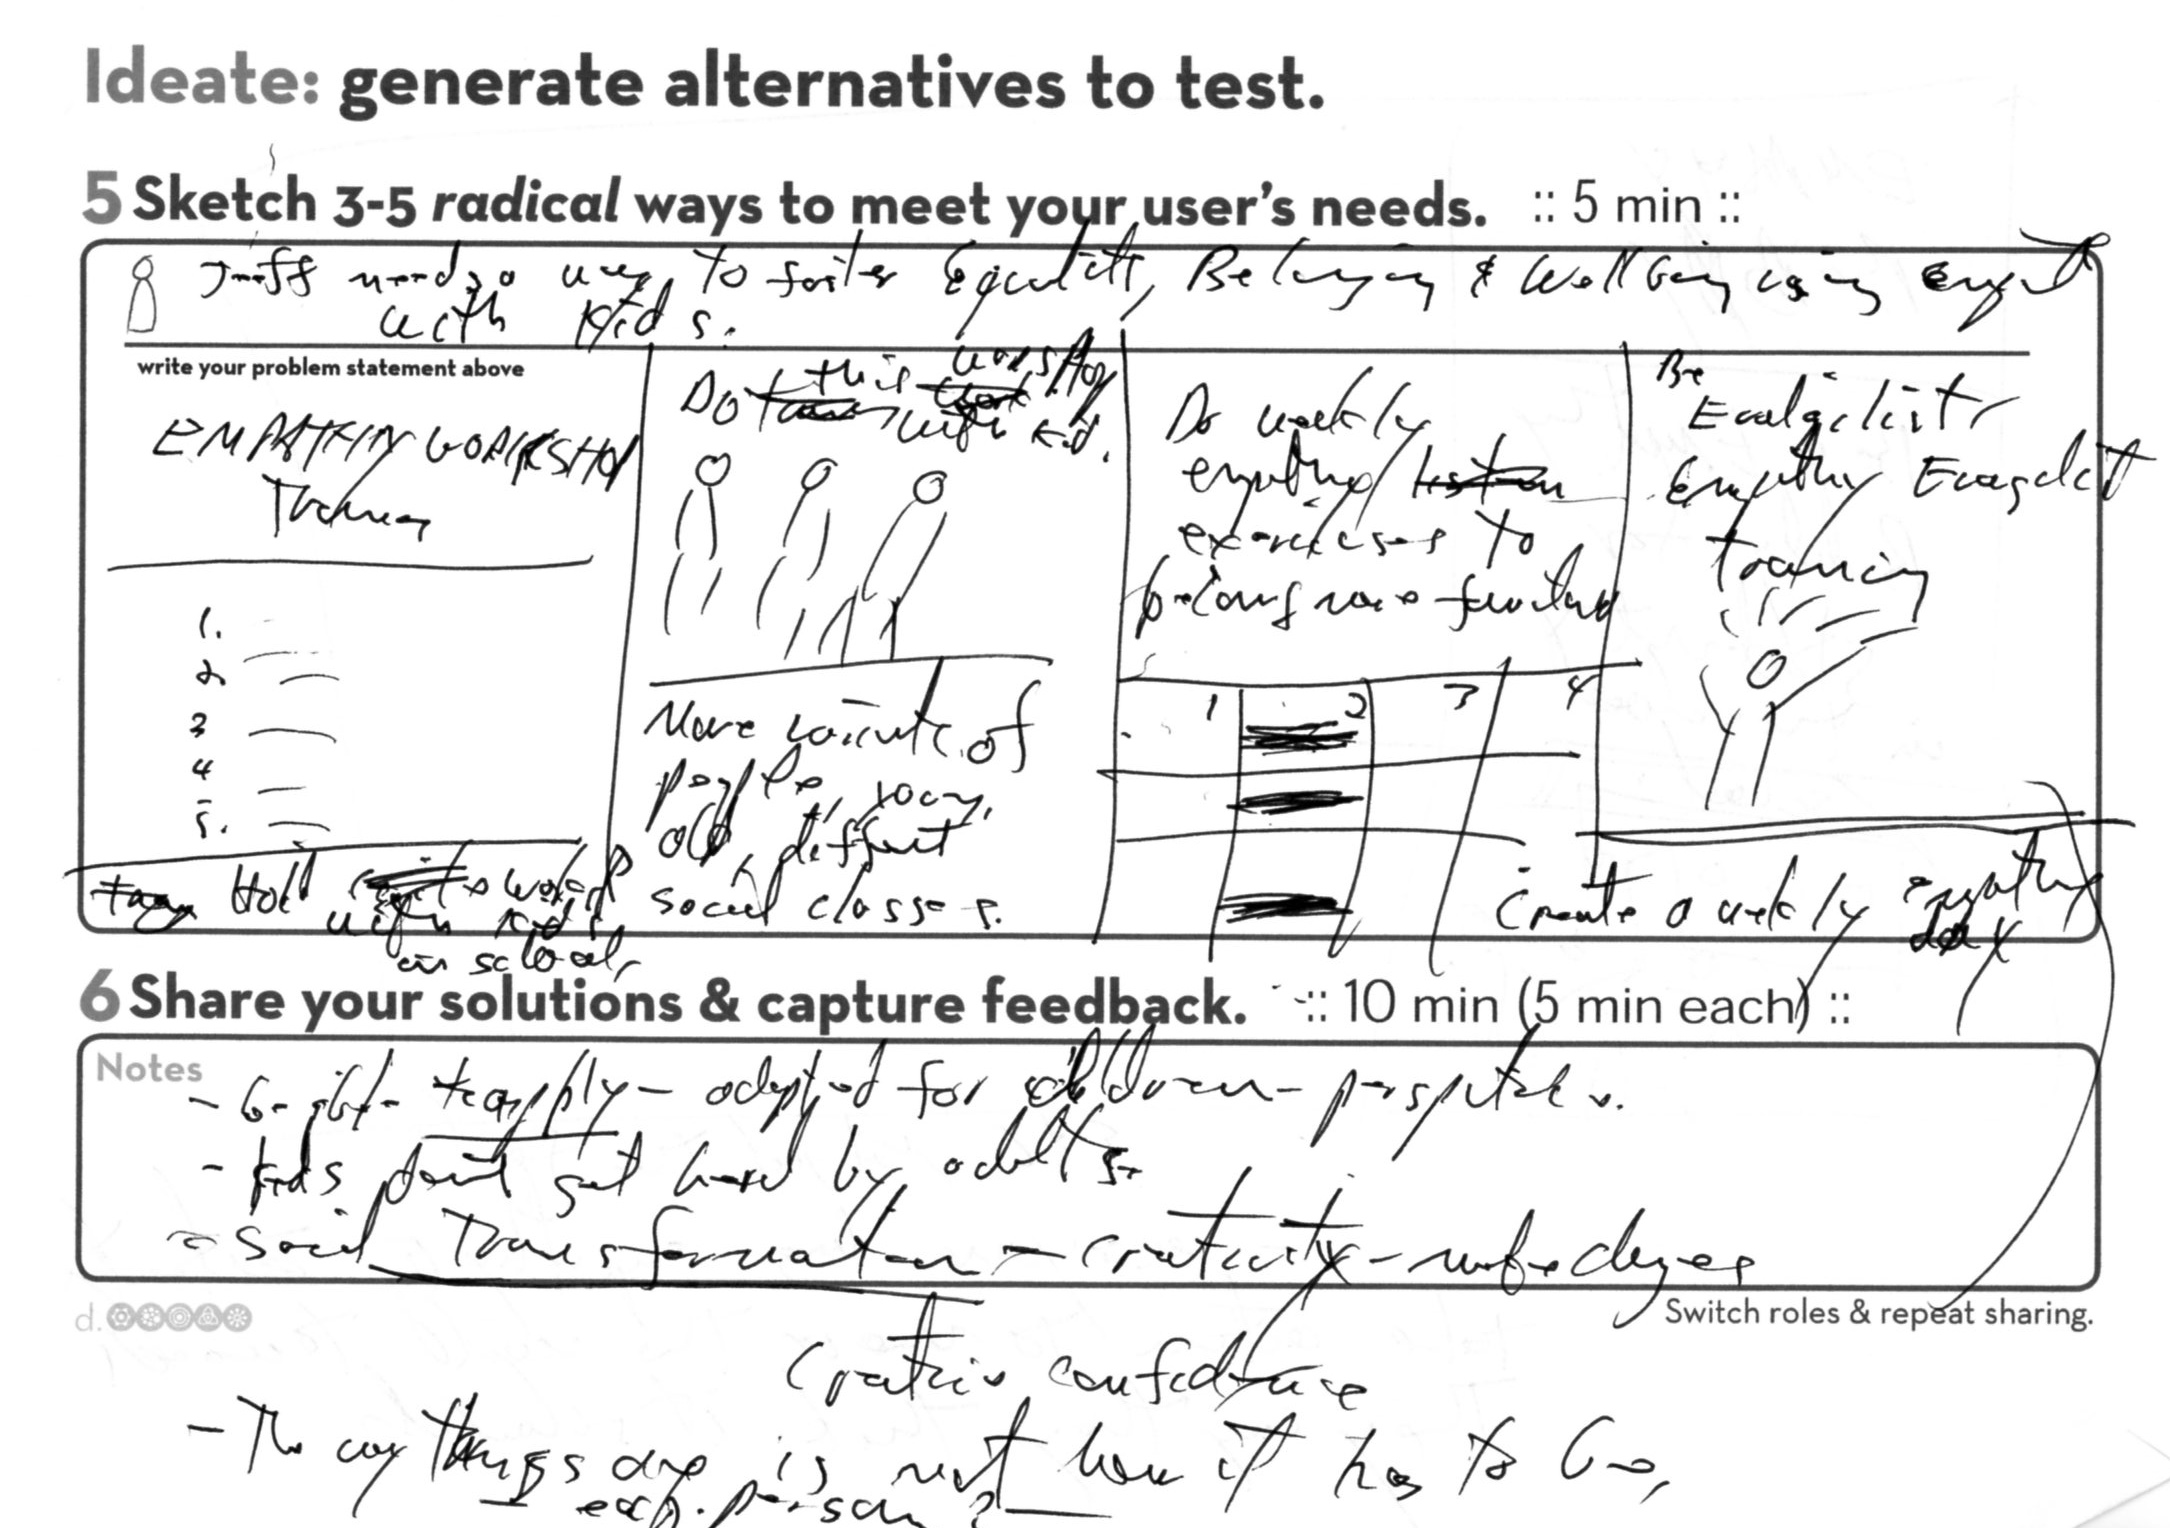 Ideate: generate alternatives to test.
5 Sketch 3-5 radical ways to meet your user's needs. :: 5 min ::
Jeff needs a way to foster Equality, Belonging & Wellbeing using empath
with kids.
write your problem statement above
EMPATHY WORKSHOP
Training
1.
2.
3
4
5.
Hold workshop
with kids
in school
Do this workshop
with kid.
More variety of
people, young,
old, different
social classes.
Do weekly
empathy
exercises to
belong more
1 2 3 4
Be
Empathy Evangelist
training
Create a weekly empathy
day
6 Share your solutions & capture feedback. :: 10 min (5 min each) ::
Notes
- adapted for children perspective.
- kids don't get heard by adults.
- Social Transformation - creativity -
d.
Switch roles & repeat sharing.
Creative confidence
- The way things are is not how it has to be,
each person